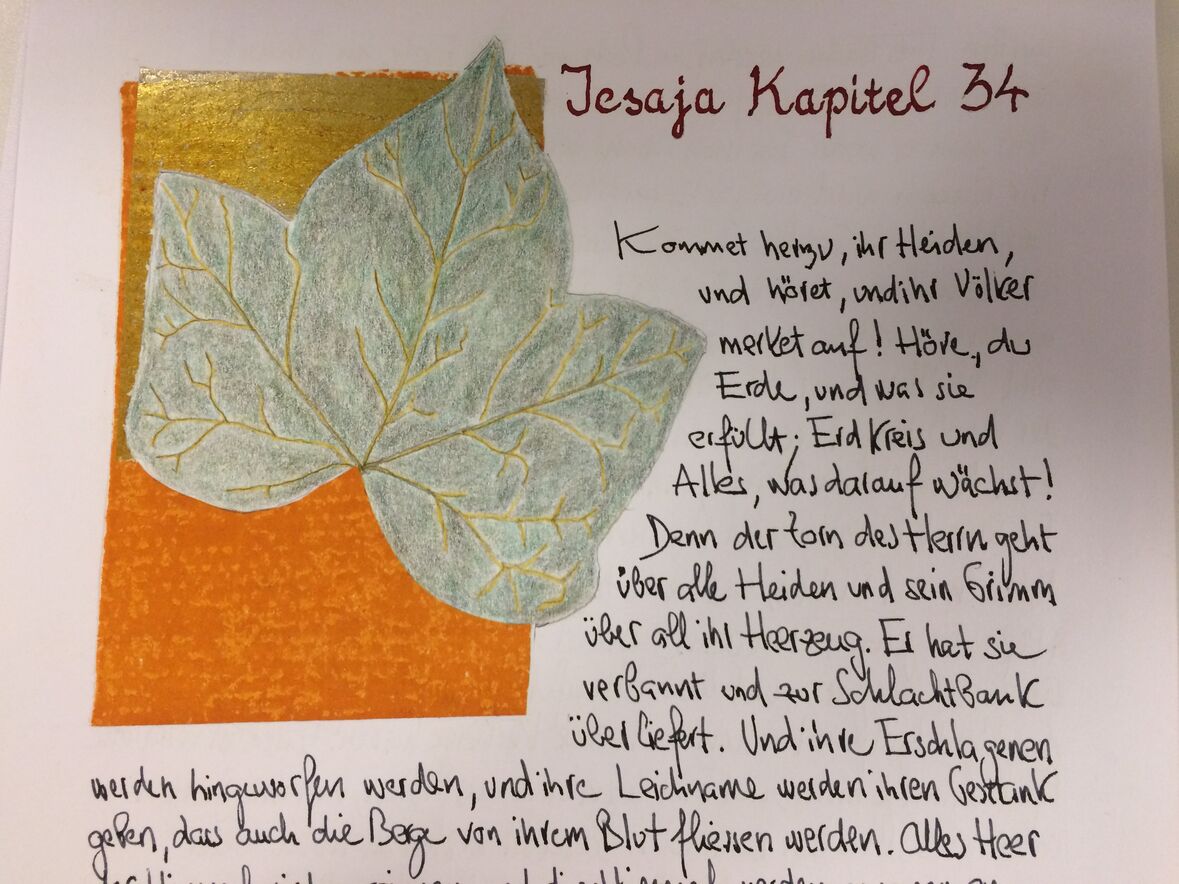 Jesaja Kapitel 34
Kommet herzu, ihr Heiden,
und höret, und ihr Völker
merket auf! Höre, du
Erde, und was sie
erfüllt; Erdkreis und
Alles, was darauf wächst!
Denn der Zorn des Herrn geht
über alle Heiden und sein Grimm
über all ihr Heerzeug. Er hat sie
verbannt und zur Schlachtbank
überliefert. Und ihre Erschlagenen
werden hingeworfen werden, und ihre Leichname werden ihren Gestank
geben, dass auch die Berge von ihrem Blut fliessen werden. Alles Heer